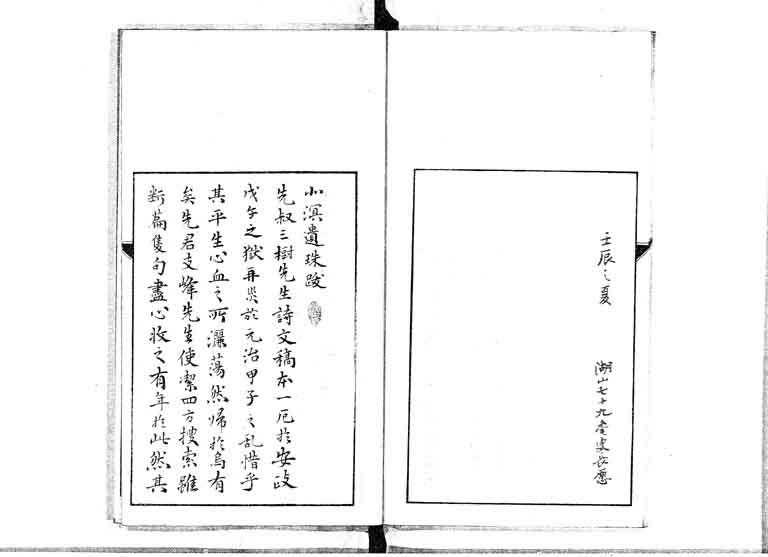 壬辰之夏
湖山七十九耋叟長愿
北溟遺珠跋
先叔三樹先生詩文稿本一厄於安政
戊午之獄再災於元治甲子之乱惜乎
其平生心血之所灑蕩然帰於烏有
矣先君支峰先生使潔四方搜索雖
断篇隻句盡心收之有年於此然其